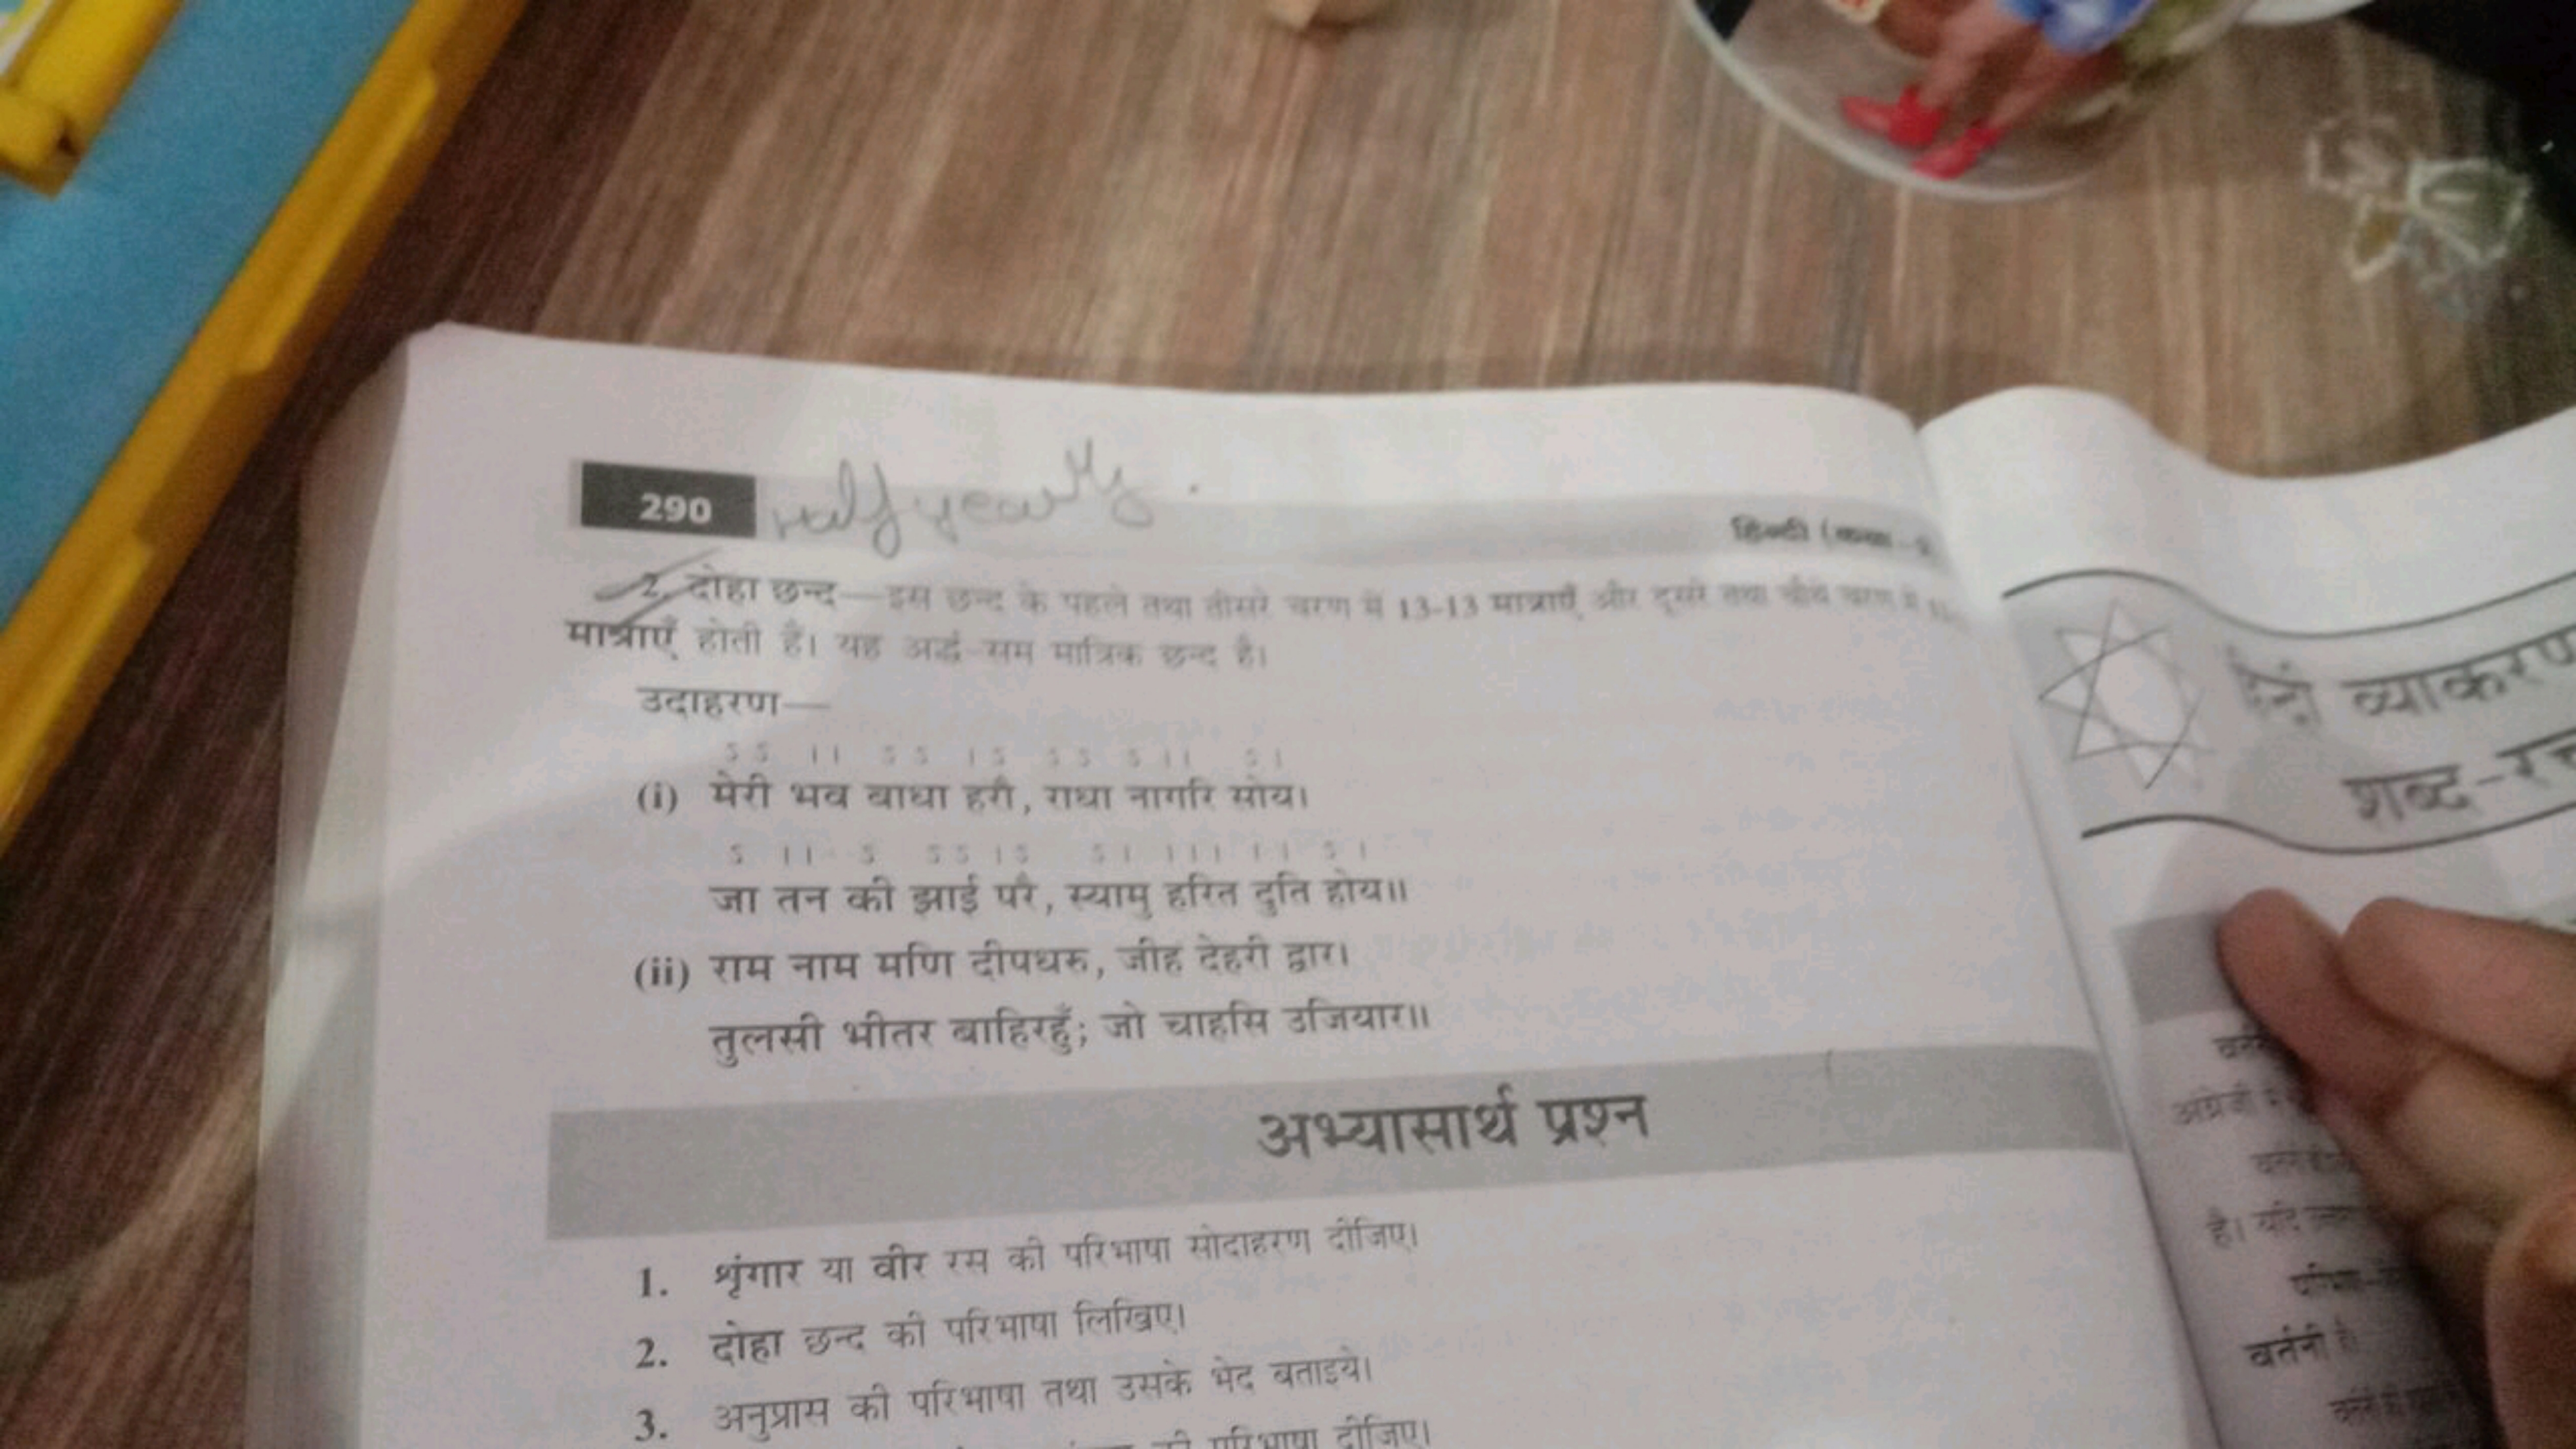 290 Half yearly.
हिन्दी (कक्षा-9
2. दोहा छन्द—इस छन्द के पहले तथा तीसरे चरण में 13-13 मात्राएँ और दूसरे तथा चौथे चरण में
मात्राएँ होती हैं। यह अर्द्ध-सम मात्रिक छन्द है।
उदाहरण—
S S I I S S I S S S S I I S I
(i) मेरी भव बाधा हरौ, राधा नागरि सोय।
S I I S S S I S S I I I I I I S I
जा तन की झाई परै, स्यामु हरित दुति होय॥
(ii) राम नाम मणि दीपधरु, जीह देहरी द्वार।
तुलसी भीतर बाहिरहुँ; जो चाहसि उजियार॥
अभ्यासार्थ प्रश्न
1. शृंगार या वीर रस की परिभाषा सोदाहरण दीजिए।
2. दोहा छन्द की परिभाषा लिखिए।
3. अनुप्रास की परिभाषा तथा उसके भेद बताइये।
की परिभाषा दीजिए।
व्याकरण
शब्द-र
अंग्रेजी
है। यदि
वर्तनी है।